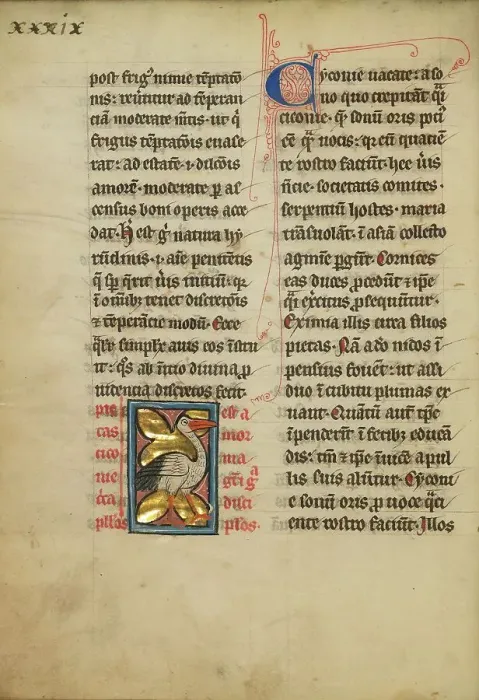 xxxix
post frig' nimie tẽptatõ
nis: reũtitur ad tẽperan
ciã moderate mẽtis. ut q̃
frigus tẽptatõis euase
rat: ad estatẽ .i. dilcõis
amorẽ. moderate p as
census boni operis acce
dat. H̃ est g̃ natura hy
rũdinis .i. aĩe penitẽtis
q̃ sp̃ q̃rit ũis initiũ. q̃
ĩ oĩbȝ tenet discretõis
⁊ tẽperãcie modũ. Ecce
q̃lr̃ simplex auis eos ĩstru
it: q̃s ab ĩitio diuina p
uidencia discretos fecit.
pie est a
tas mor
cico nia
nie
disci
pllos
Cyconie uacate: a so
no quo crepitãt q̃i
ciconie. q̃ sonũ oris poci'
eẽ q̃ uocis: q̃ eũ quaciẽ
te rostro faciũt. hee ũis
ñcie. societatis comites.
serpentiũ hostes. maria
trãsuolãt. ĩ asiã collecto
agmĩe pgũt. Cornices
eas duces p̃cedũt ⁊ ip̃e
q̃i exercitus p̃sequũtur.
Eximia illis circa filios
pietas. Nã adeo nidos ĩ
pensius fouẽt: ut assi
duo ĩcubitu plumas ex
uant. Quãtũ aut̃ tp̃e
ĩpenderĩt ĩ fetibȝ educã
dis: tm̃ ⁊ ip̃e ĩuicẽ a pul
lis suis alũtur. Cyconi
e sonũ oris p uoce q̃ci
ente rostro faciũt. Illos